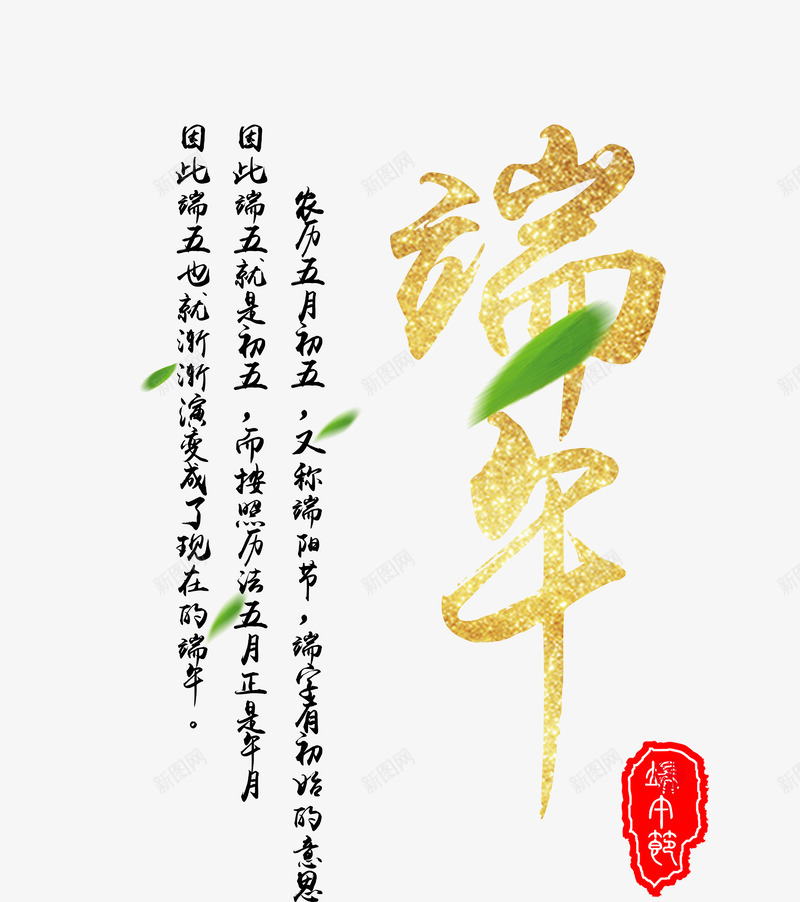 端午
农历五月初五，又称端阳节，端字有初始的意思
因此端五就是初五，而按照历法五月正是午月
因此端五也就渐渐演变成了现在的端午。
端午節
新图网